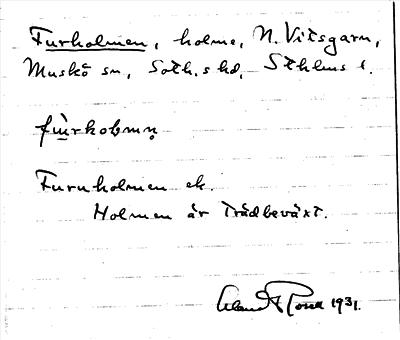 Furholmen, holme, N. Vitsgarn,
Muskö sn, Soth.s hd, Sthlms l.
fùrkoḷmn̥
Furuholmen ek.
Holmen är trädbeväxt.
1931.